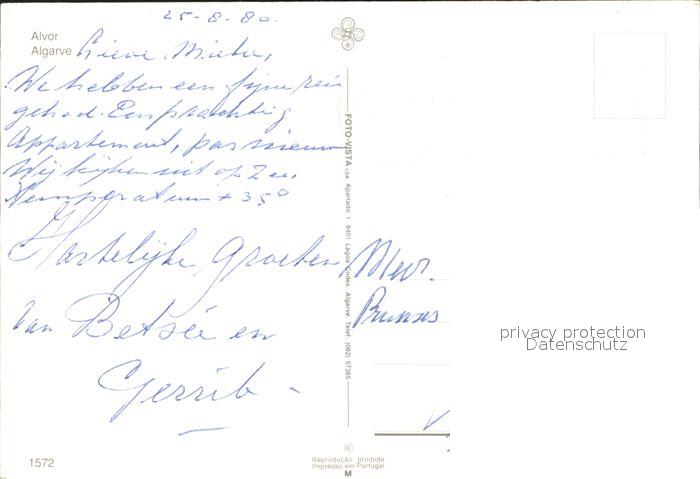 25-8-80.
Alvor
Algarve
Lieve Mieke,
We hebben een fijne reis
gehad. Een prachtig
Appartement, pas nieuw
Wij kijken uit op Zee.
Temperatuur + 35°
Hartelijke Groeten
van Betsie en
Gerrit -
Mevr.
FOTO-VISTA Lda. Apartado 1 8401 Lagoa Codex. Algarve. Telef. (082) 57365
privacy protection
Datenschutz
1572
©
Reprodução proibida
Impresso em Portugal
M